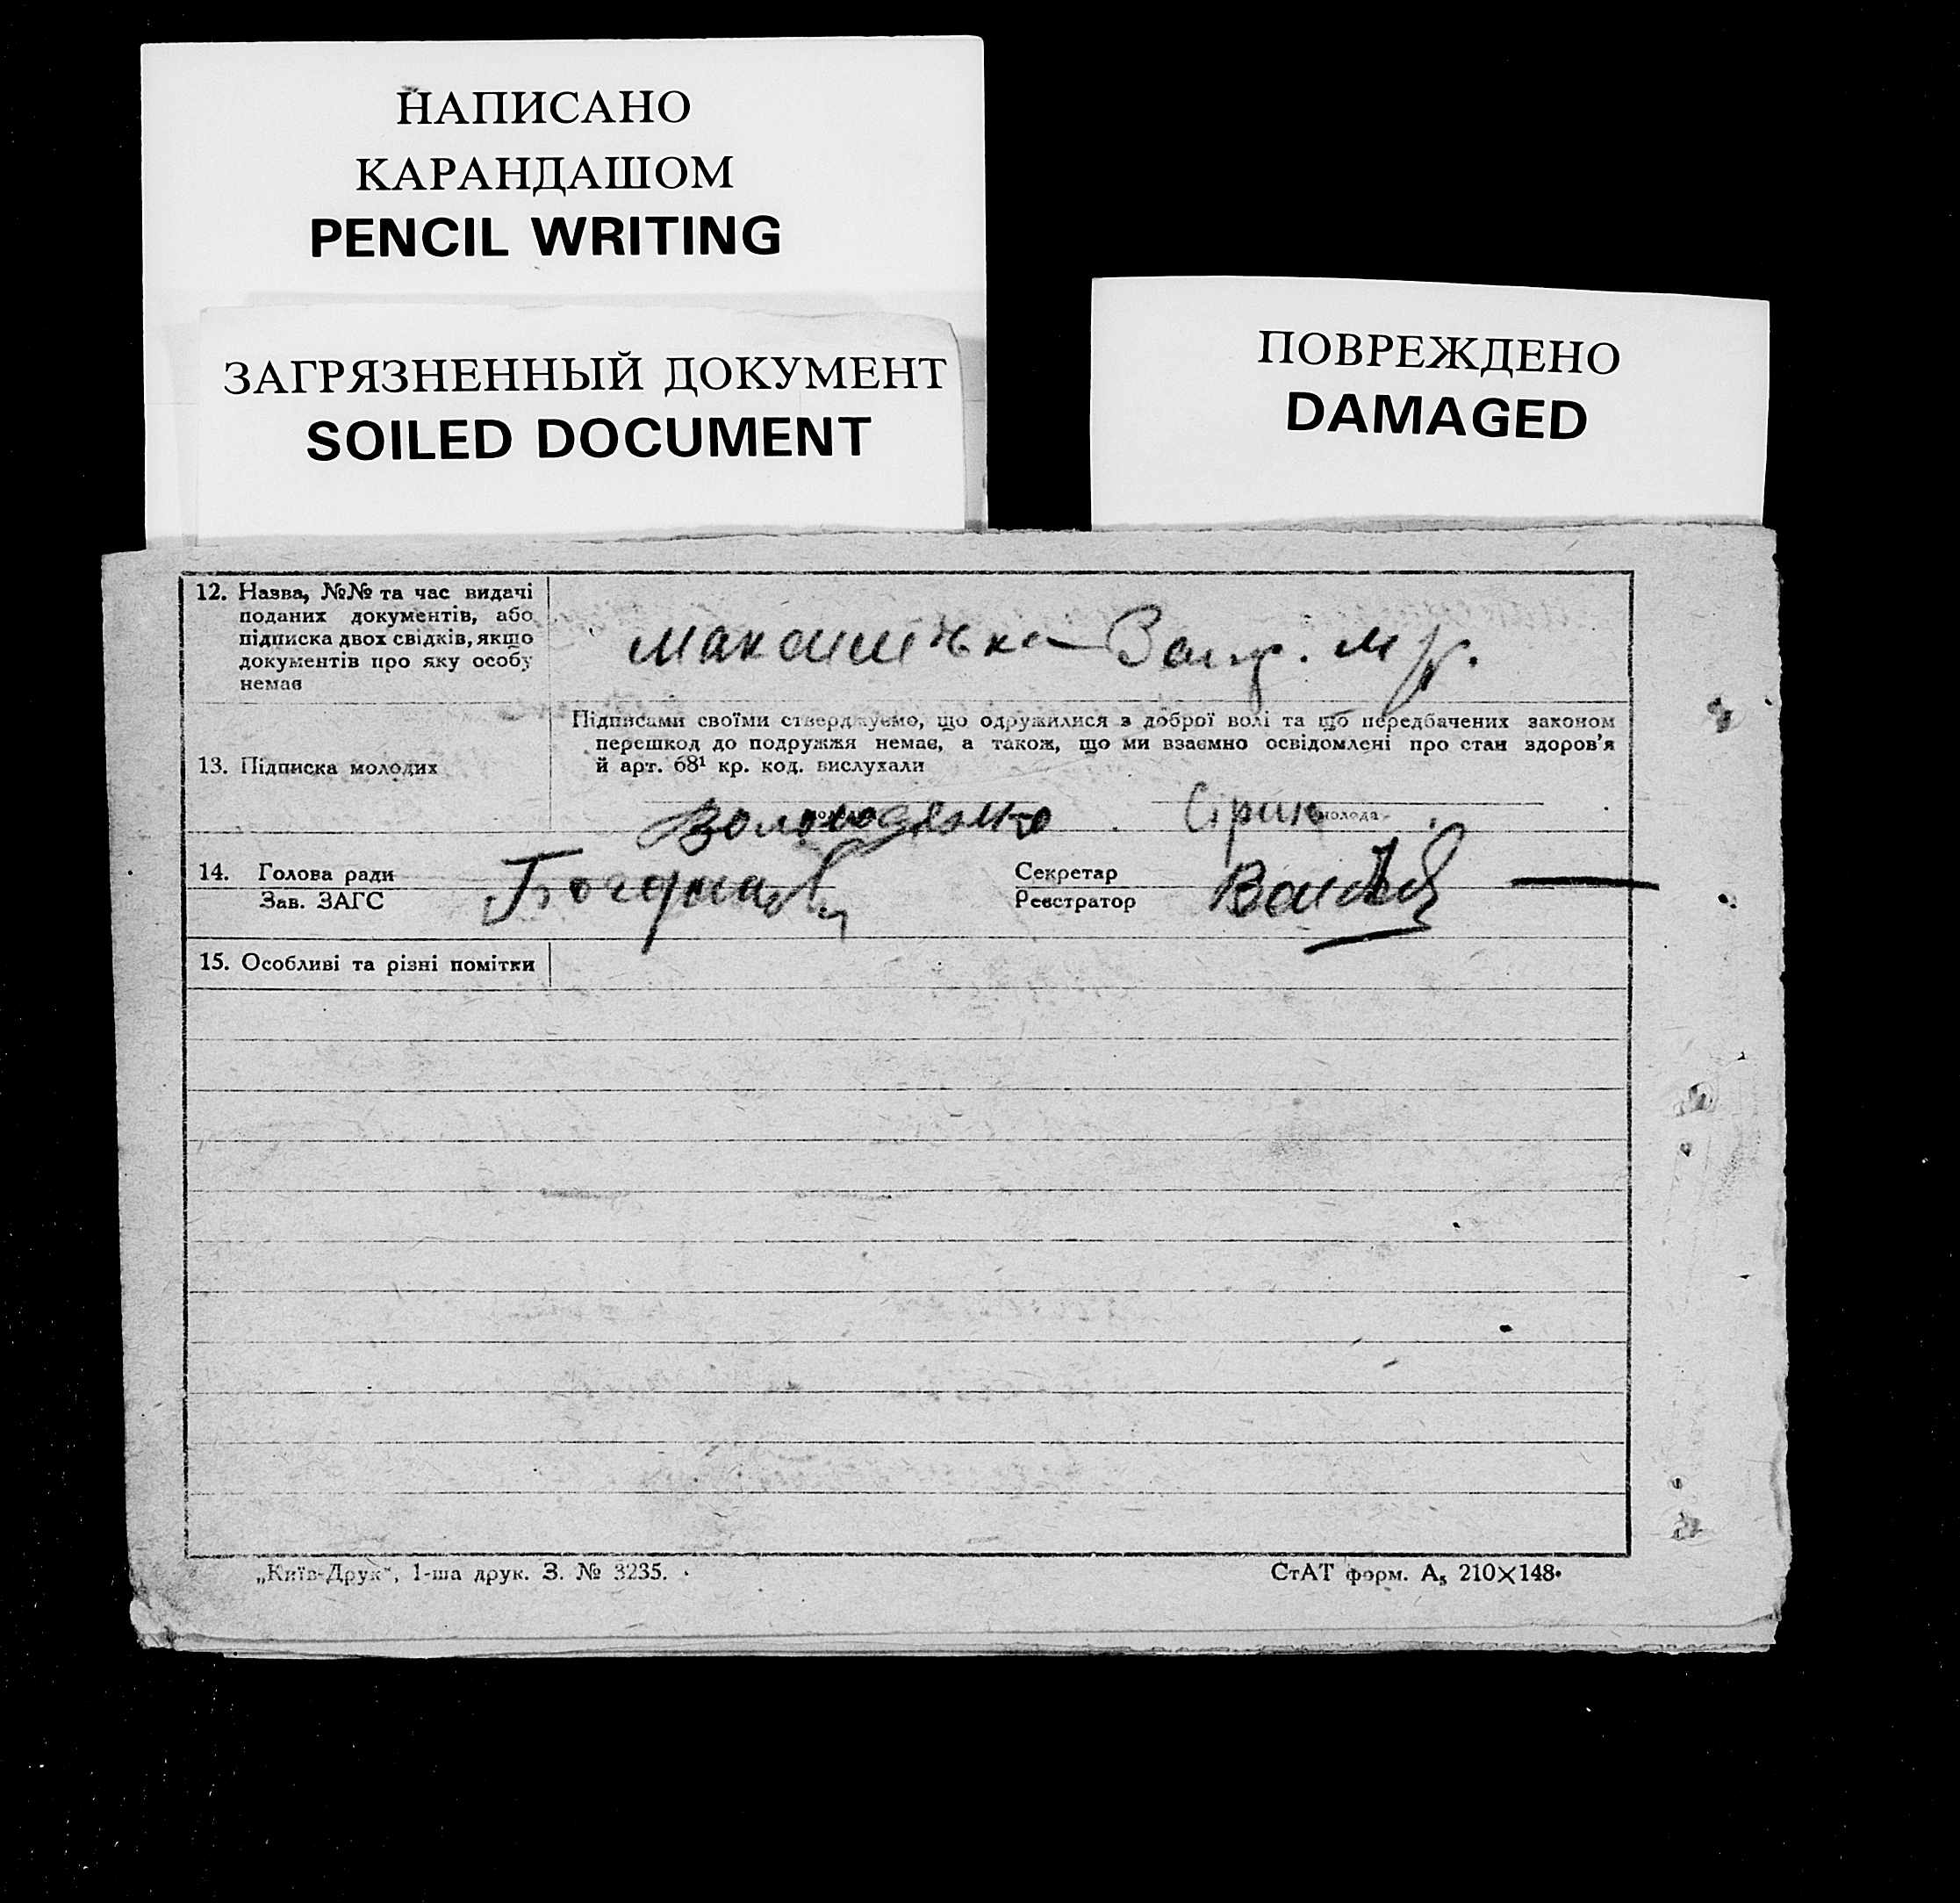 НАПИСАНО
КАРАНДАШОМ
PENCIL WRITING
ЗАГРЯЗНЕННЫЙ ДОКУМЕНТ
SOILED DOCUMENT
ПОВРЕЖДЕНО
DAMAGED
12. Назва, №№ та час видачі
поданих документів, або
підписка двох свідків, якщо
документів про яку особу
немає
13. Підписка молодих
Підписами своїми стверджуємо, що одружилися з доброї волі та що передбачених законом
перешкод до подружжя немає, а також, що ми взаємно освідомлені про стан здоров'я
й арт. 68¹ кр. код. вислухали
Сірик молода
14. Голова ради
Зав. ЗАГС
Секретар
Реєстратор
15. Особливі та різні помітки
„Київ-Друк“, 1-ша друк. З. № 3235.
СтАТ форм. А₅ 210×148.